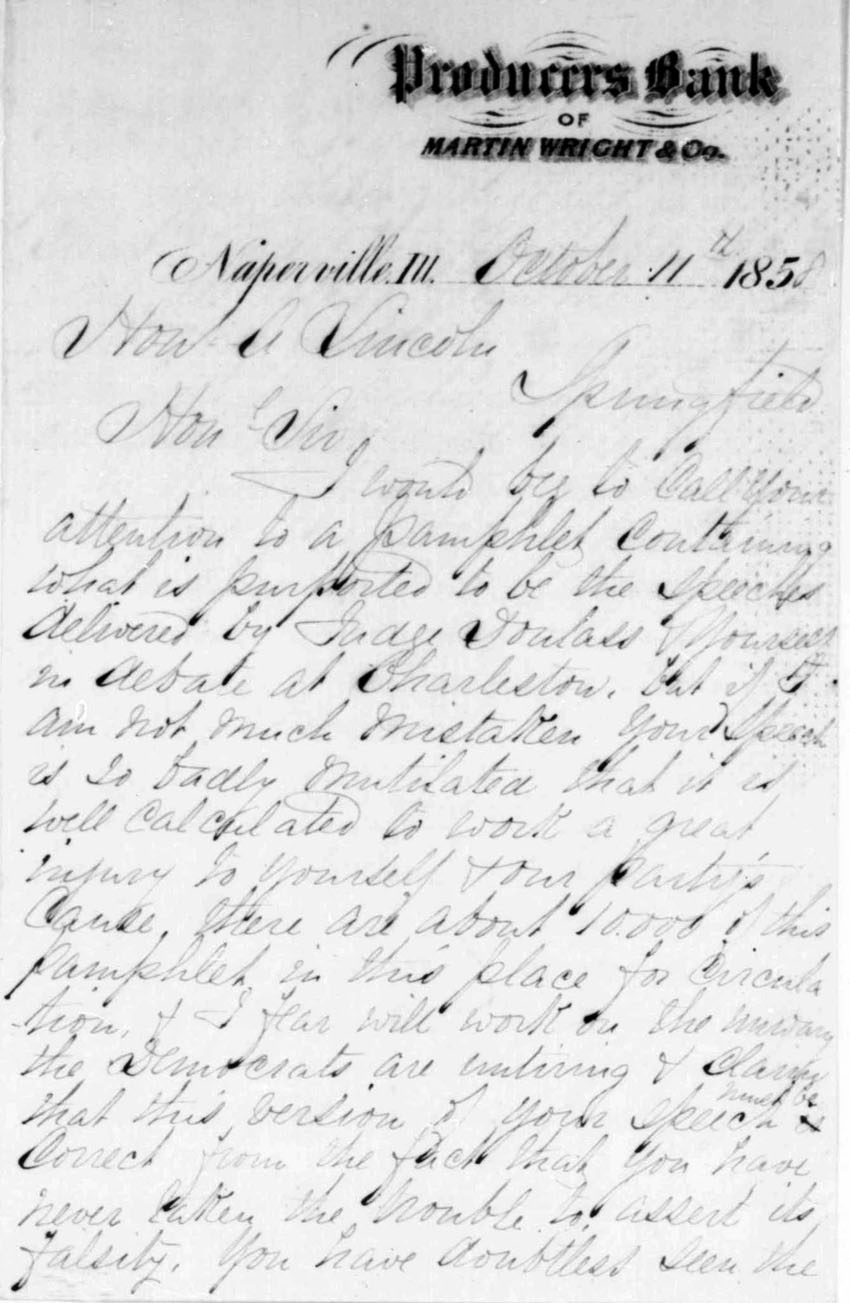 Producers Bank
OF
MARTIN WRIGHT & Co.
Naperville, Ill. October 11th 1858
Hon A Lincoln
Springfield
Honl Sir,
I would beg to Call your
attention to a pamphlet containing
what is purported to be the speeches
delivered by Judge Doulass & Yourself
in debate at Charleston, but if I
am not much mistaken your speech
is so badly mutilated that it is
well calculated to work a great
injury to yourself & our party's
Cause, there are about 10.000 of this
pamphlet in this place for Circula
tion, & I fear will work on the unwary
the Democrats are untiring & claim
that this version of your speech must be
Correct from the fact that you have
never taken the trouble to assert its
falsity. You have doubtless seen the